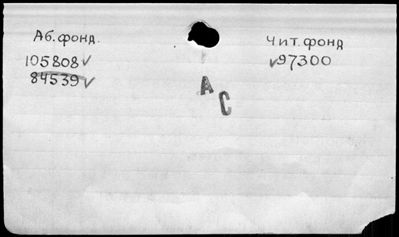 Аб. фонд.
105808 ✓
84539 ✓
Чит. фонд
✓ 97300
АС